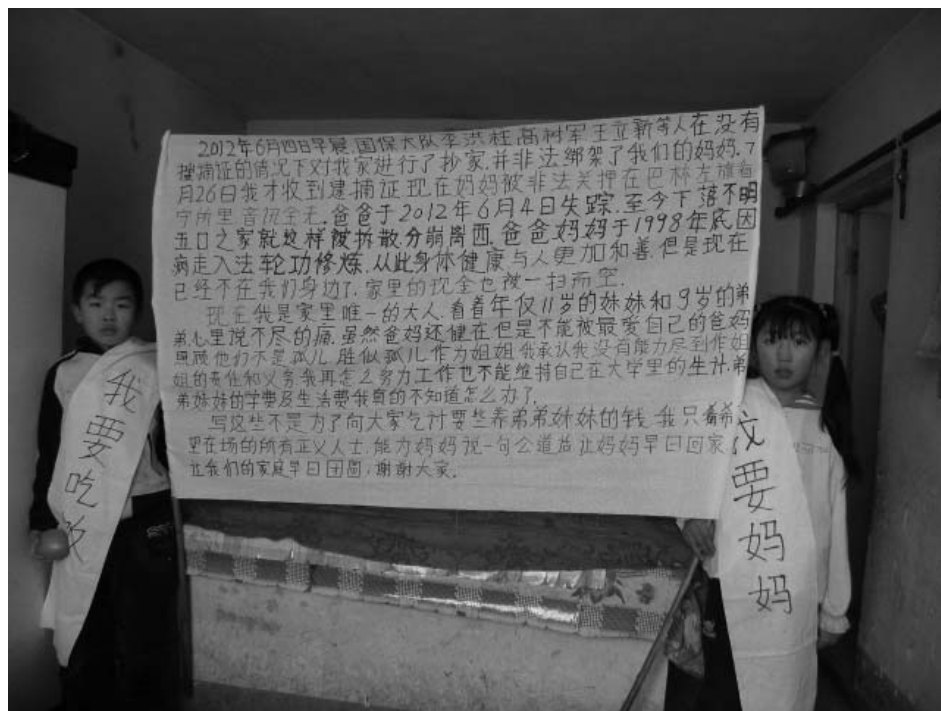 2012年6月四日早晨,国保大队李洪桂高树军王立新等人在没有
搜捕证的情况下对我家进行了抄家,并非法绑架了我们的妈妈,7
月26日我才收到逮捕证,现在妈妈被非法关押在巴林左旗看
守所里音讯全无,爸爸于2012年6月4日失踪,至今下落不明
五口之家就这样被拆散,分崩离西,爸爸妈妈于1998年底因
病走入法轮功修炼,从此身体健康与人更加和善,但是现在
已经不在我们身边了,家里的现金也被一扫而空.
现在我是家里唯一的大人,看着年仅11岁的妹妹和9岁的弟
弟心里说不尽的痛,虽然爸妈还健在但是不能被最爱自己的爸妈
照顾他们不是孤儿胜似孤儿作为姐姐,我承认我没有能力尽到作姐
姐的责任和义务,我再怎么努力工作也不能维持自己在大学里的生计,弟
弟妹妹的学费及生活费我真的不知道怎么办了.
写这些不是为了向大家乞讨要些养弟弟妹妹的钱,我只希
望在场的所有正义人士,能为妈妈说一句公道话让妈妈早日回家,
让我们的家庭早日团圆,谢谢大家.
我要吃饭
我要妈妈